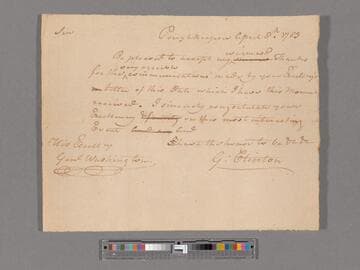 Sir
Poughkeepsie April 8th 1783
warmest
Be pleased to accept my Thanks
for the communications made by your Excellency's
Letter of this Date which I have this Moment
received. I sincerely congratulate your
Excellency on this most interesting
Event
I have the honor to be &c &c
His Excellcy
Genl. Washington
G: Clinton